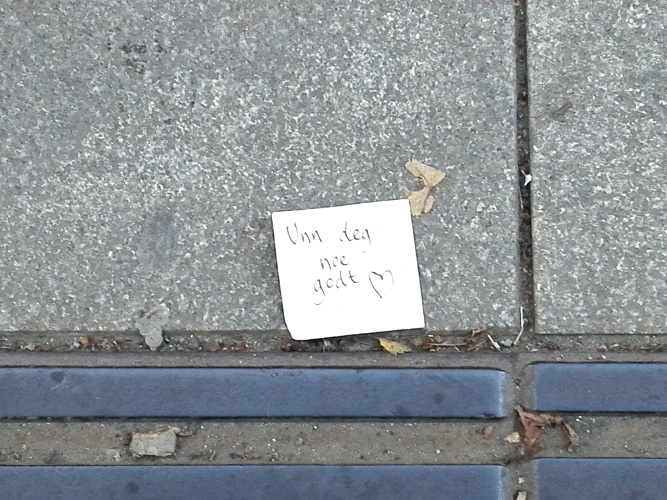 Unn deg
noe
godt ♡